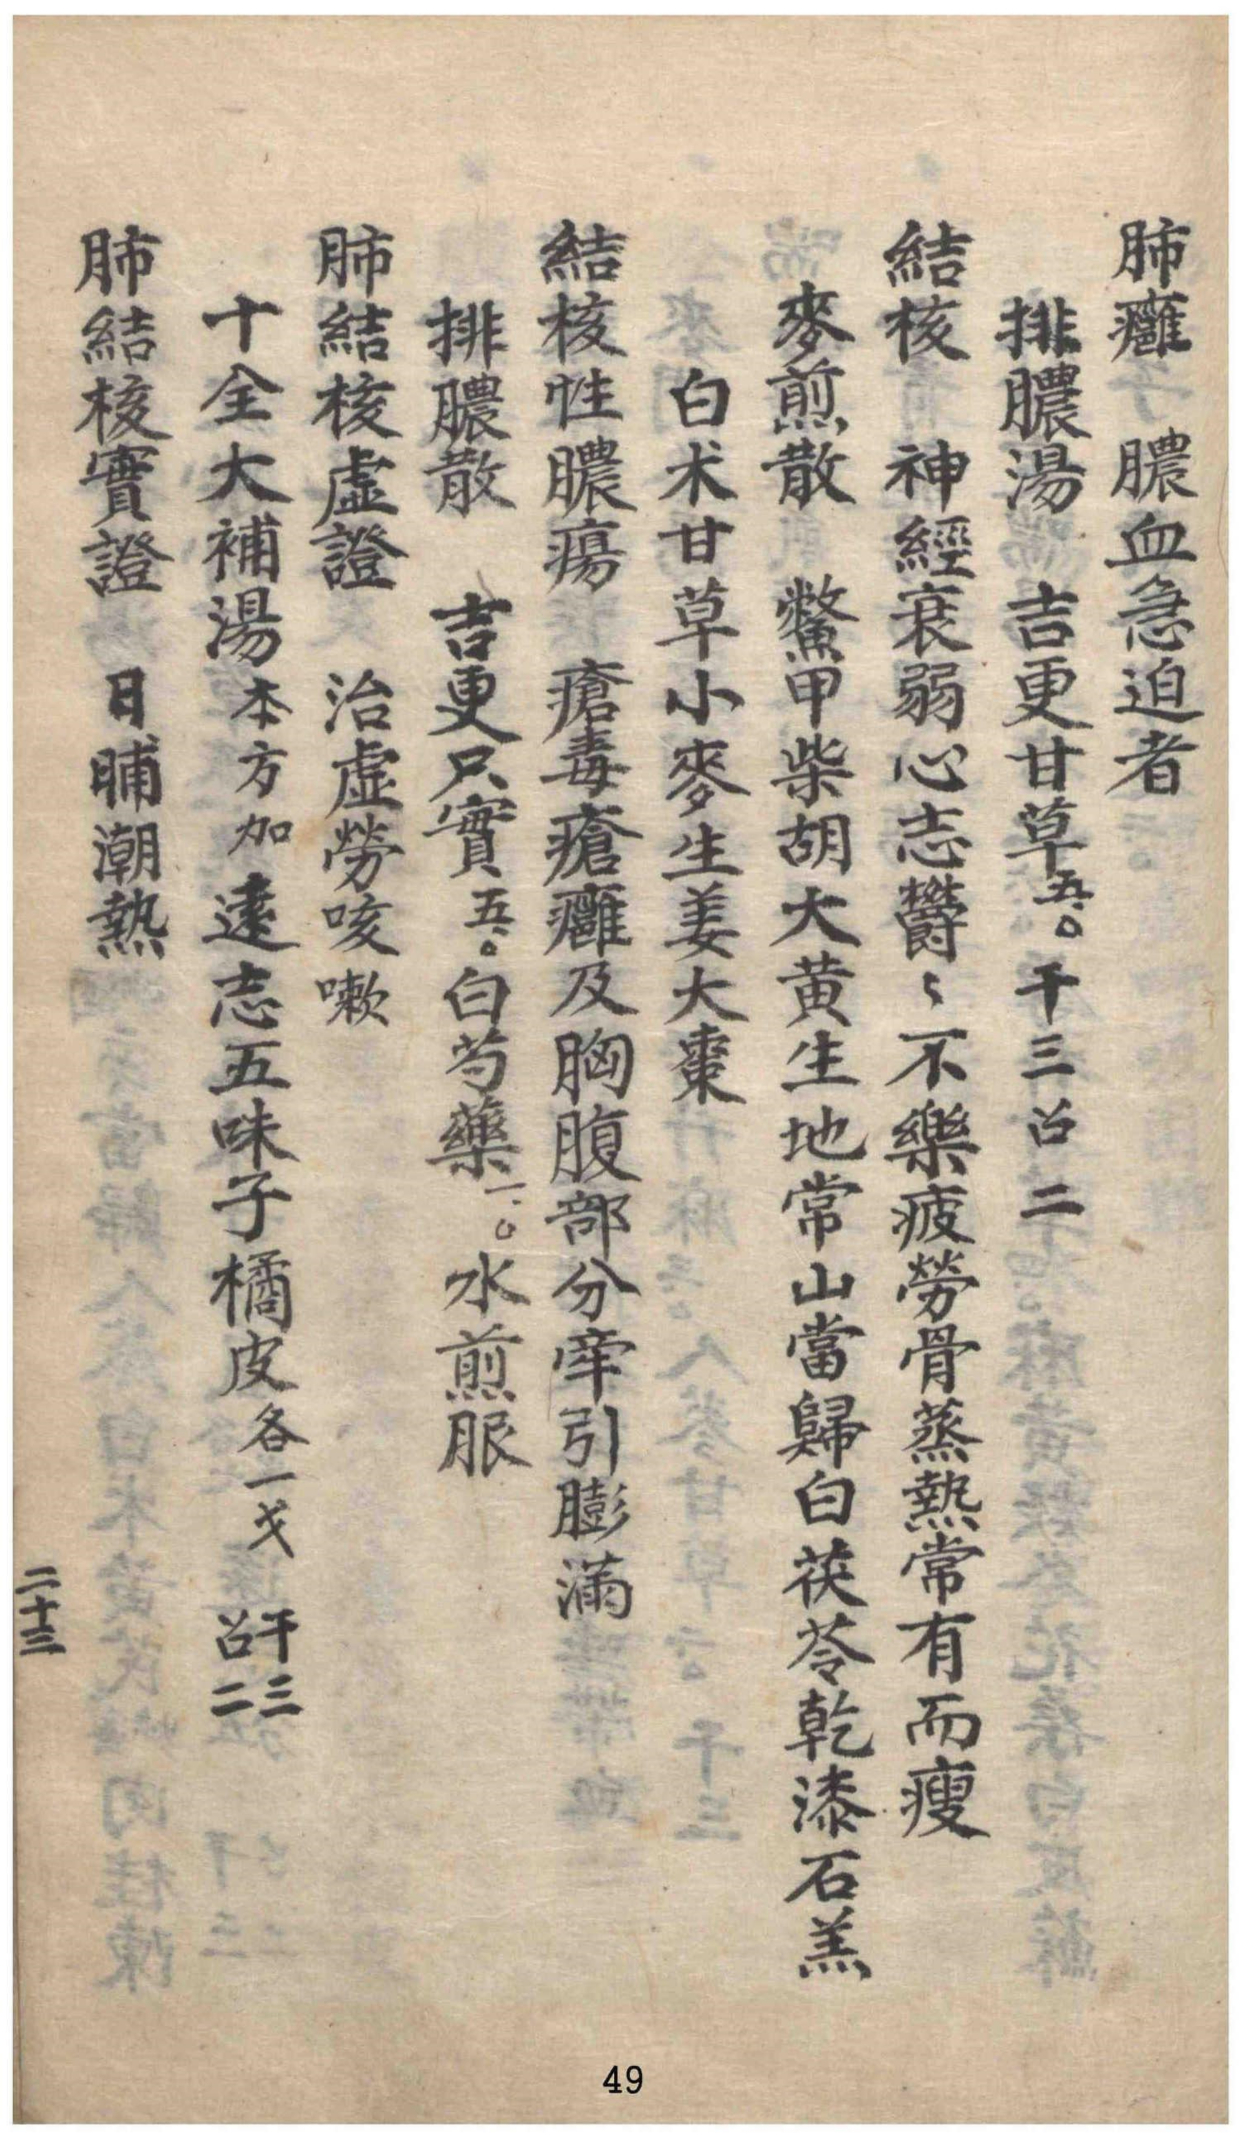 肺癰　膿血急迫者
排膿湯　吉更甘草五.○干三召二
結核　神經衰弱心志欝〻不樂疲勞骨蒸熱常有而瘦
麥煎散　鱉甲柴胡大黄生地常山當歸白茯苓乾漆石羔
白朮甘草小麥生姜大棗
結核性膿瘍　瘡毒瘡癰及胸腹部分牽引膨滿
排膿散　吉更只實五.○白芍藥一.○水煎服
肺結核虛證　治虛勞咳嗽
十全大補湯本方加遠志五味子橘皮各一戈　干三召二
肺結核實證　日晡潮熱
二十三
49